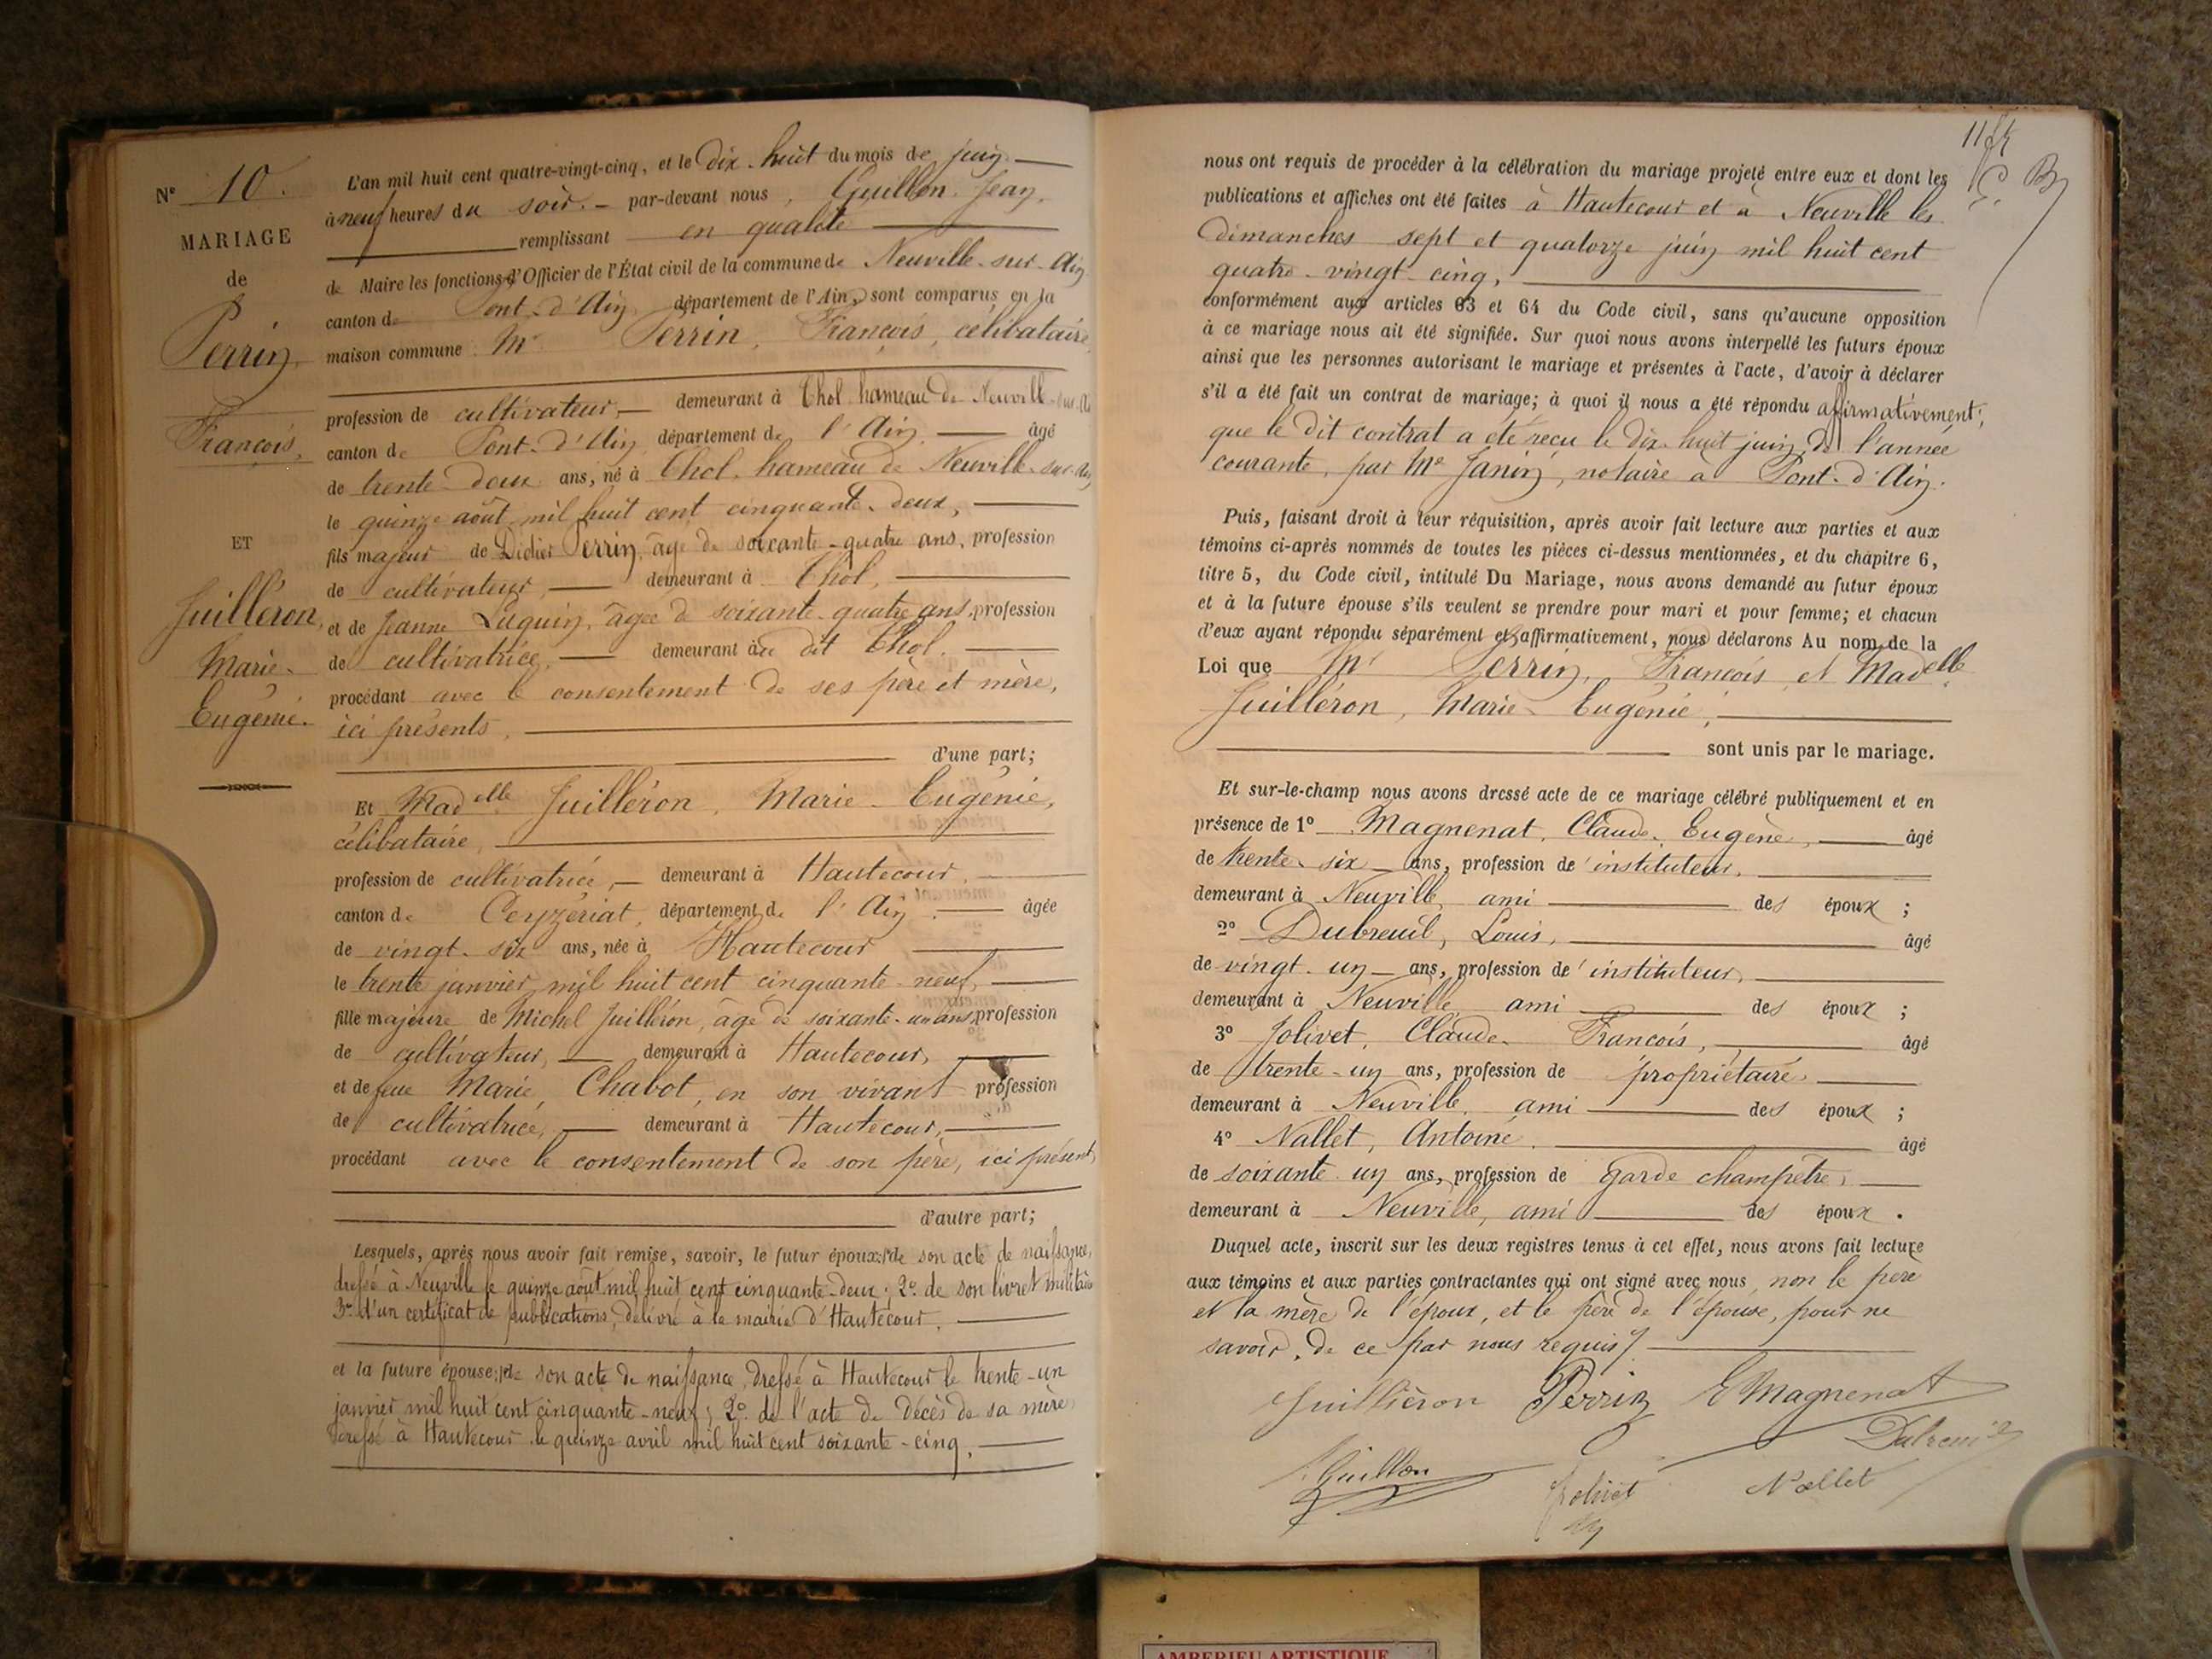 N° 10.
MARIAGE
de
Perrin,
François,
ET
Juilléron,
Marie-
Eugénie.
L'an mil huit cent quatre-vingt-cinq, et le dix-huit du mois de juin
à neuf heures du soir. par-devant nous, Guillon Jean,
remplissant en qualité
de Maire les fonctions d'Officier de l'État civil de la commune de Neuville-sur-Ain
canton de Pont-d'Ain, département de l'Ain, sont comparus en la
maison commune Mr Perrin, François, célibataire,
profession de cultivateur, demeurant à Thol hameau de Neuville-sur-Ain
canton de Pont-d'Ain, département de l'Ain, âgé
de trente-deux ans, né à Thol, hameau de Neuville-sur-Ain
le quinze août mil huit cent cinquante-deux,
fils majeur de Didier Perrin, âgé de soixante-quatre ans, profession
de cultivateur, demeurant à Thol,
et de Jeanne Luguin, âgée de soixante-quatre ans, profession
de cultivatrice, demeurant au dit Thol.
procédant avec le consentement de ses père et mère,
ici présents,
d'une part;
Et Madelle Juilléron, Marie-Eugénie,
célibataire,
profession de cultivatrice, demeurant à Hautecour,
canton de Ceyzériat, département de l'Ain, âgée
de vingt-six ans, née à Hautecour
le trente janvier mil huit cent cinquante-neuf,
fille majeure de Michel Juilléron, âgé de soixante-un ans, profession
de cultivateur, demeurant à Hautecour,
et de feue Marie Chabot, en son vivant profession
de cultivatrice, demeurant à Hautecour,
procédant avec le consentement de son père, ici présent,
d'autre part;
Lesquels, après nous avoir fait remise, savoir, le futur époux: 1° de son acte de naissance,
dressé à Neuville le quinze août mil huit cent cinquante-deux; 2° de son livret militaire
3° d'un certificat de publications, délivré à la mairie d'Hautecour,
et la future épouse: 1° de son acte de naissance, dressé à Hautecour le trente-un
janvier mil huit cent cinquante-neuf; 2° de l'acte de décès de sa mère,
dressé à Hautecour le quinze avril mil huit cent soixante-cinq,
B
nous ont requis de procéder à la célébration du mariage projeté entre eux et dont les
publications et affiches ont été faites à Hautecour et à Neuville les
dimanches sept et quatorze juin mil huit cent
quatre-vingt-cinq,
conformément aux articles 63 et 64 du Code civil, sans qu'aucune opposition
à ce mariage nous ait été signifiée. Sur quoi nous avons interpellé les futurs époux
ainsi que les personnes autorisant le mariage et présentes à l'acte, d'avoir à déclarer
s'il a été fait un contrat de mariage; à quoi il nous a été répondu affirmativement;
que le dit contrat a été reçu le dix-huit juin de l'année
courante, par Me Janin, notaire à Pont-d'Ain.
Puis, faisant droit à leur réquisition, après avoir fait lecture aux parties et aux
témoins ci-après nommés de toutes les pièces ci-dessus mentionnées, et du chapitre 6,
titre 5, du Code civil, intitulé Du Mariage, nous avons demandé au futur époux
et à la future épouse s'ils veulent se prendre pour mari et pour femme; et chacun
d'eux ayant répondu séparément et affirmativement, nous déclarons Au nom de la
Loi que Mr Perrin, François et Madelle
Juilléron, Marie-Eugénie,
sont unis par le mariage.
Et sur-le-champ nous avons dressé acte de ce mariage célébré publiquement et en
présence de 1° Magnenat, Claude-Eugène, âgé
de trente-six ans, profession de instituteur,
demeurant à Neuville, ami des époux;
2° Dubreuil, Louis, âgé
de vingt-un ans, profession de instituteur,
demeurant à Neuville ami des époux;
3° Jolivet, Claude-François, âgé
de trente-un ans, profession de propriétaire,
demeurant à Neuville, ami des époux;
4° Nallet, Antoine, âgé
de soixante-un ans, profession de garde champêtre,
demeurant à Neuville, ami des époux.
Duquel acte, inscrit sur les deux registres tenus à cet effet, nous avons fait lecture
aux témoins et aux parties contractantes qui ont signé avec nous, non le père
et la mère de l'époux, et le père de l'épouse, pour ne
savoir, de ce par nous requis
Juilliéron Perrin E Magnenat
Dubreuil
Guillon Jolivet Nallet
AMBERIEU ARTISTIQUE